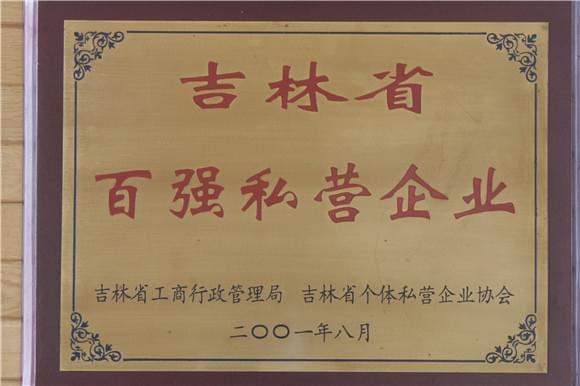 吉林省
百强私营企业
吉林省工商行政管理局 吉林省个体私营企业协会
二〇〇一年八月